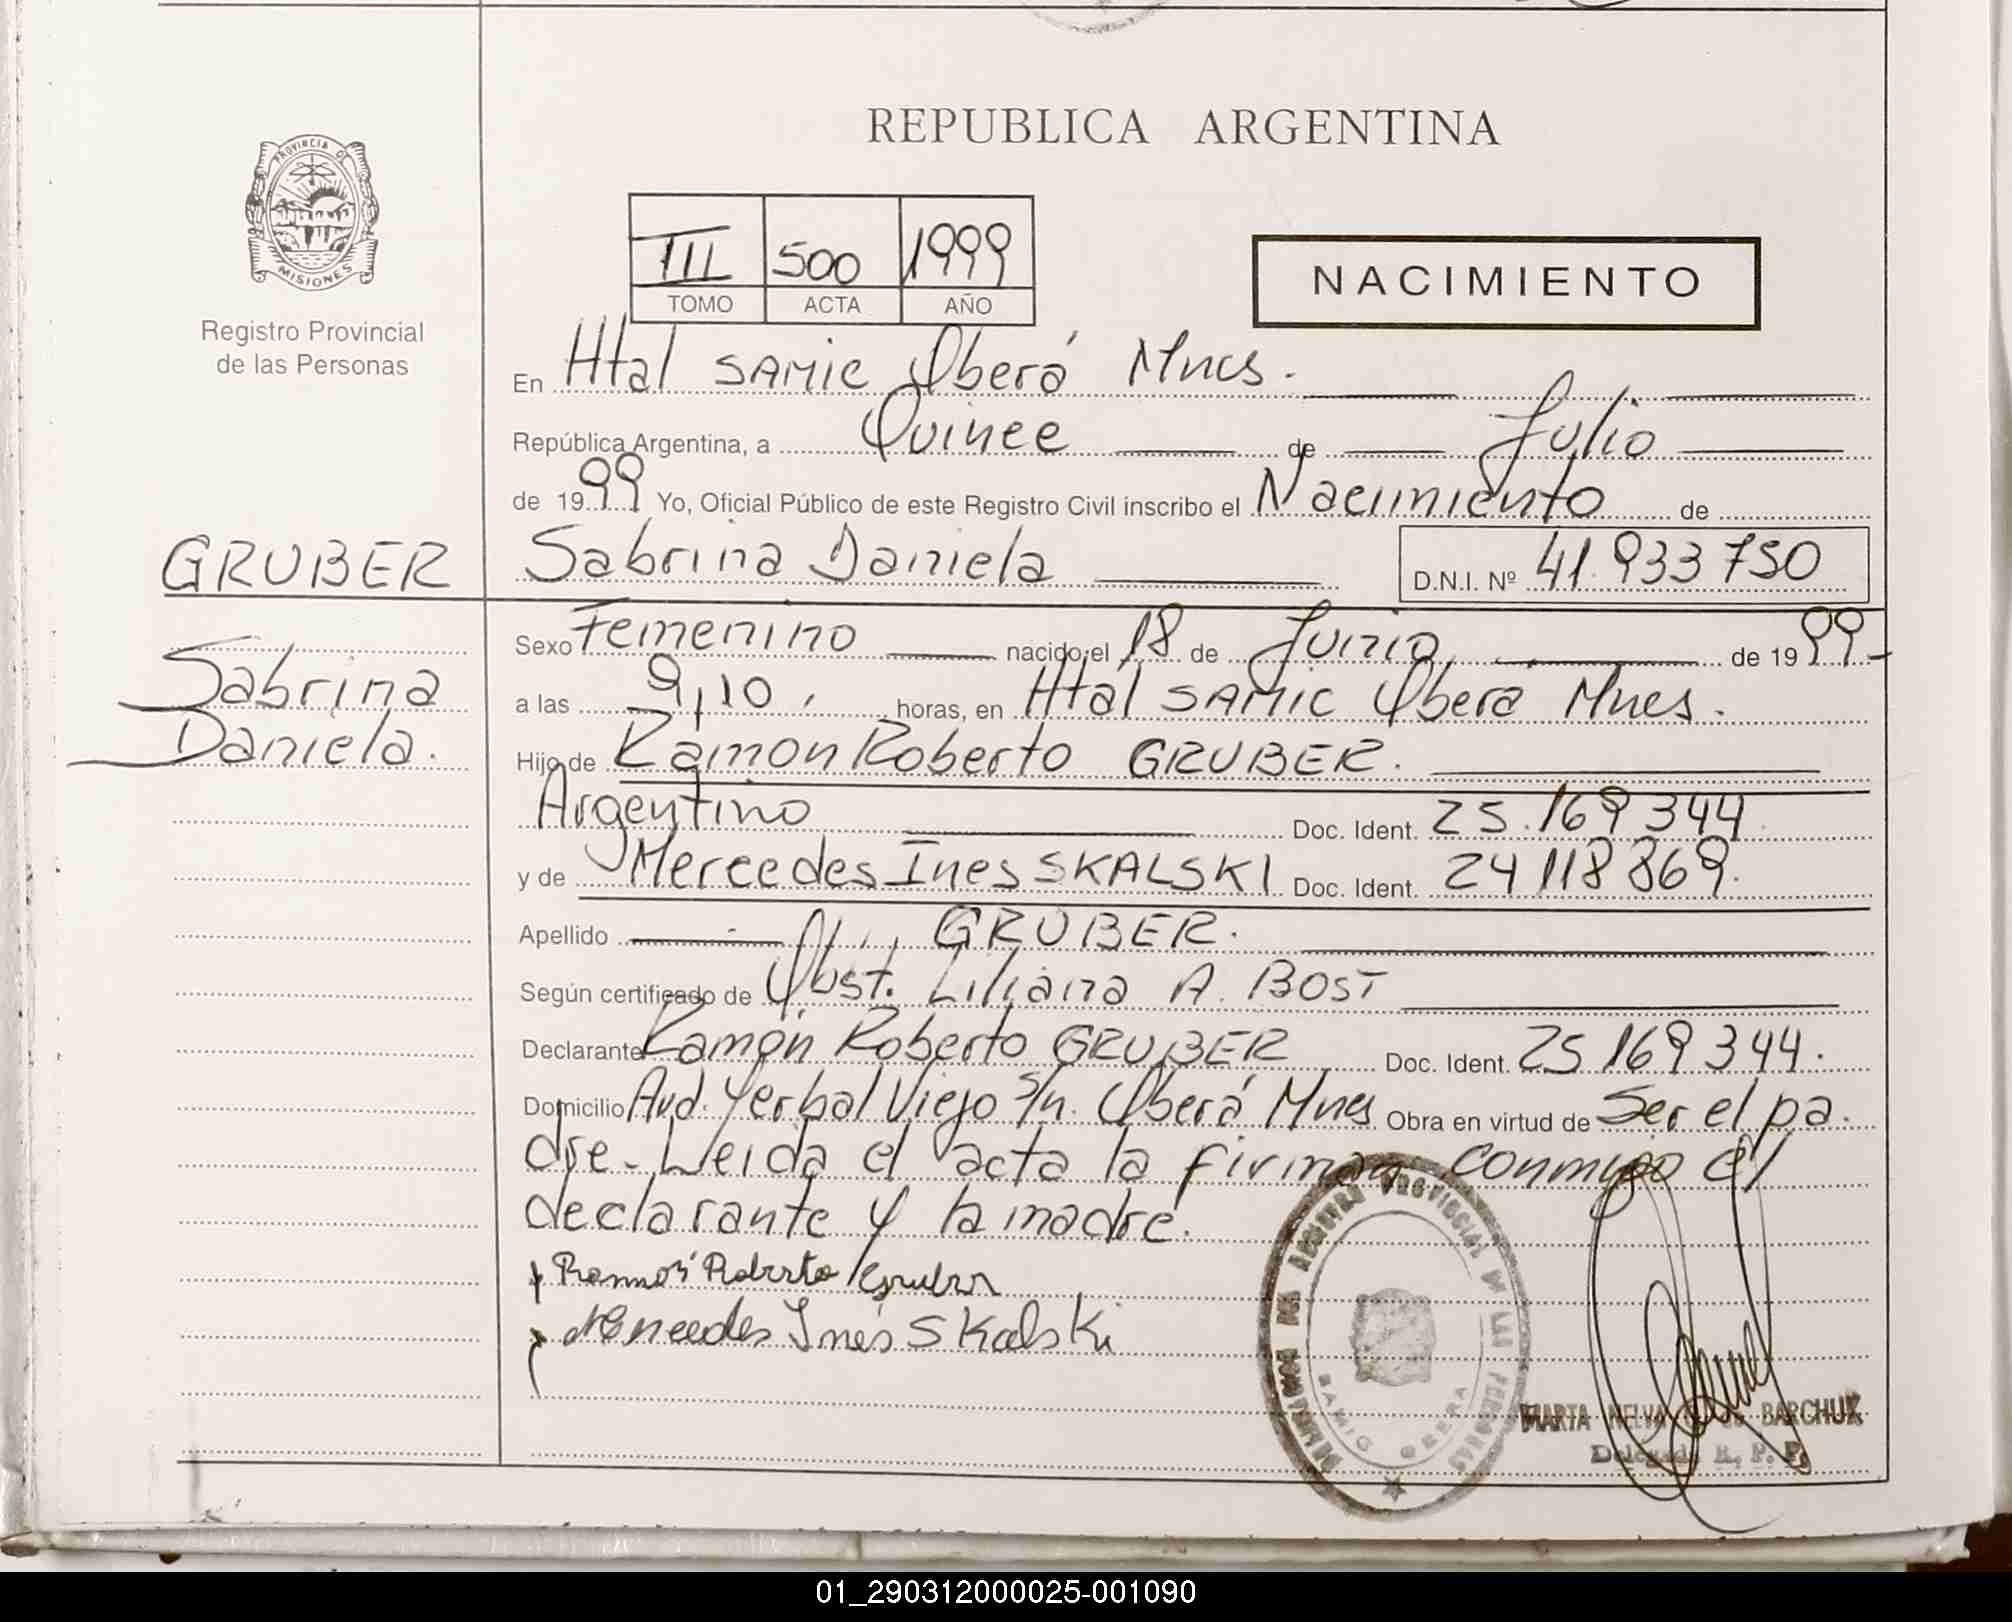 REPUBLICA ARGENTINA
PROVINCIA DE
MISIONES
Registro Provincial
de las Personas
III 500 1999
TOMO ACTA AÑO
NACIMIENTO
En Htal SAMIC Oberá Mnes.
República Argentina, a Quince de Julio
de 1999 Yo, Oficial Público de este Registro Civil inscribo el Nacimiento de
GRUBER Sabrina Daniela D.N.I. Nº 41.933750
Sexo Femenino nacido el 18 de Junio de 1999-
Sabrina
a las 9,10, horas, en Htal SAMIC Oberá Mnes.
Daniela.
Hijo de Ramón Roberto GRUBER.
Argentino Doc. Ident. 25.169344
y de Mercedes Ines SKALSKI Doc. Ident. 24118869.
Apellido GRUBER.
Según certificado de Obst. Liliana A. BOST
Declarante Ramón Roberto GRUBER Doc. Ident. 25169344.
Domicilio Avd. Yerbal Viejo S/n. Oberá Mnes Obra en virtud de Ser el pa
dre- Leida el acta la firman conmigo el
declarante y la madre.
Ramon Roberto Gruber
Mercedes Inés Skalski
REGISTRO PROVINCIAL DE LAS PERSONAS
SAMIC OBERA
MARTA NELVA BARCHUK
Delegada R. P. P.
01_290312000025-001090